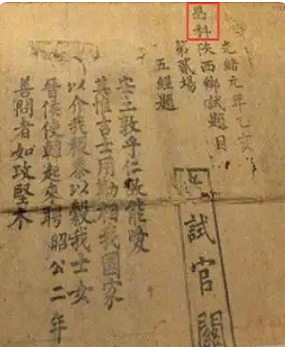 光緒元年乙亥
恩科陝西鄉試題目
第貳場
五經題
安土敦乎仁故能愛
其惟吉士用勱相我國家
以介我稷黍以穀我士女
晉侯使韓起來聘 昭公二年
善問者如攻堅木
試官關